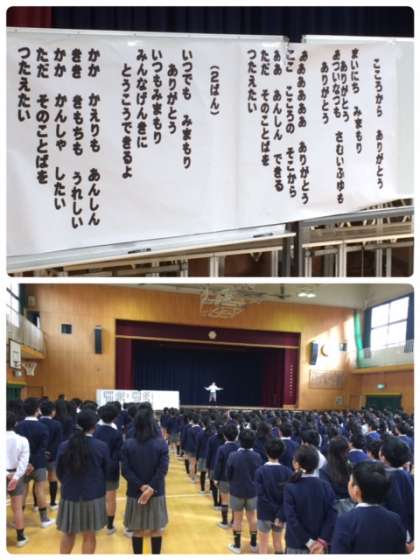 こころから　ありがとう
まいにち　みまもり
ありがとう
あついなつも　さむいふゆも
ありがとう
ああああああ　ありがとう
ここ　こころの　そこから
ああ　あんしん　できる
ただ　そのことばを
つたえたい
（２ばん）
いつでも　みまもり
ありがとう
いつもみまもり
みんなげんきに
とうこうできるよ
かか　かえりも　あんしん
きき　きもちも　うれしい
かか　かんしゃ　したい
ただ　そのことばを
つたえたい